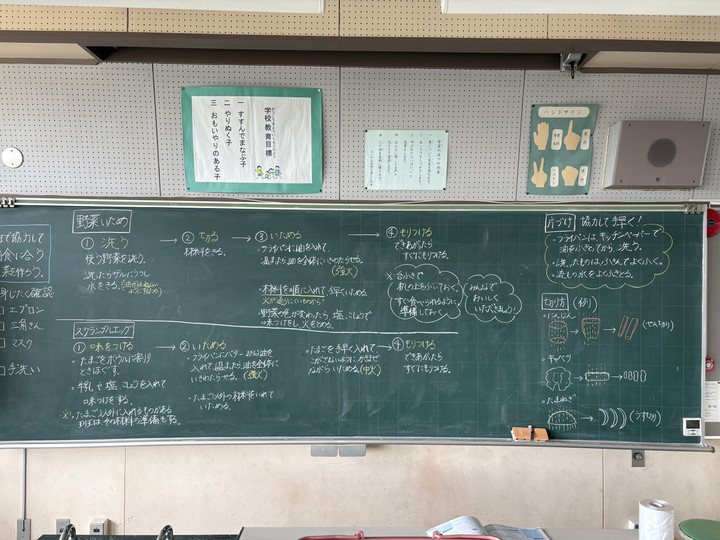 学校教育目標
一 すすんでまなぶ子
二 やりぬく子
三 おもいやりのある子
ハンドサイン
で協力して
食に合う
菜を作ろう。
身じたく確認
□ エプロン
□ 三角きん
□ マスク
□ 手洗い
野菜いため
① 洗う
使う野菜を洗う。
洗ったらザルにうつし
水をきる。
→ ② 切る
材料をきる。
→ ③ いためる
・フライパンに油を入れて、
温まったら油を全体にいきわたらせる。
(強火)
・材料を順に入れて手早くいためる。
火が通りにくいものから!
・野菜の色が変わったら塩、こしょうで
味つけをし、火をとめる。
→ ④ もりつける
できあがたら
すぐにもりつける。
※台ふきで
机の上をふいておく。
すぐ食べられるように、
準備しておく。
みんなで
おいしく
いただきましょう!
スクランブルエッグ
① 味をつける
・たまごをボウルに割り
ときほぐす。
・牛乳や塩、こしょうを入れて
味つけをする。
※・たまご以外に入れるものがある
班は、その材料の準備もする。
→ ② いためる
・フライパンにバター
入れて、温まったら油を全体に
いきわたらせる。(強火)
・たまご以外の材料をいれて
いためる。
・たまごを手早く入れて
こがさないようにかきまぜ
ながらいためる。(中火)
→ ④ もりつける
できあがたら
すぐにもりつける。
片づけ 協力して手早く!
・フライパンは、キッチンペーパーで
油をふきとってから洗う。
・洗ったものは、ふきんでよくふく。
・流しの水をよくふきとる。
切り方 (例)
・にんじん
(せん切り)
・キャベツ
・たまねぎ
(うす切り)